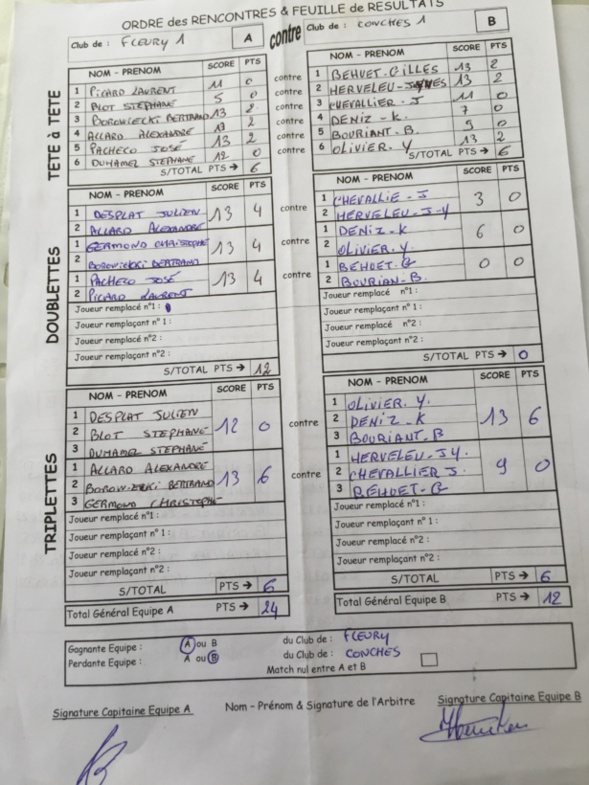 ORDRE des RENCONTRES & FEUILLE de RESULTATS
Club de : FLEURY 1 A contre Club de : CONCHES 1 B
TETE à TETE
NOM - PRENOM SCORE PTS NOM - PRENOM SCORE PTS
1 PICARD LAURENT 11 0 contre 1 BEHUET-GILLES 13 2
2 BLOT STEPHANE 5 0 contre 2 HERVELEU- 13 2
3 BOROWIECKI BERTRAND 13 2 contre 3 CHEVALLIER - J 11 0
4 ALLARD ALEXANDRE 13 2 contre 4 DENIZ - K 7 0
5 PACHECO JOSÉ 13 2 contre 5 BOURIANT-B. 9 0
6 DUHAMEL STEPHANE 12 0 contre 6 OLIVIER. Y 13 2
S/TOTAL PTS → 6 S/TOTAL PTS → 6
DOUBLETTES
NOM - PRENOM SCORE PTS NOM - PRENOM SCORE PTS
1 DESPLAT JULIEN 13 4 contre 1 CHEVALLIE - J 3 0
2 ALLARD ALEXANDRE 2 HERVELEU-J-Y
1 GERMOND CHRISTOPHE 13 4 contre 1 DENIZ - K 6 0
2 BOROWIECKI BERTRAND 2 OLIVIER. Y.
1 PACHECO JOSÉ 13 4 contre 1 BEHUET-G 0 0
2 PICARD LAURENT 2 BOURIAN-B.
Joueur remplacé n°1 : Joueur remplacé n°1 :
Joueur remplaçant n° 1 : Joueur remplaçant n° 1 :
Joueur remplacé n°2 : Joueur remplacé n°2 :
Joueur remplaçant n°2 : Joueur remplaçant n°2 :
S/TOTAL PTS → 12 S/TOTAL PTS → 0
TRIPLETTES
NOM - PRENOM SCORE PTS NOM - PRENOM SCORE PTS
1 DESPLAT JULIEN 12 0 contre 1 OLIVIER. Y. 13 6
2 BLOT STEPHANE 2 DENIZ - K
3 DUHAMEL STEPHANE 3 BOURIANT-B
1 ALLARD ALEXANDRE 13 6 contre 1 HERVELEU JY. 9 0
2 BERTRAND 2 CHEVALLIER J.
3 GERMOND CHRISTOPHE 3 BEHUET-G
Joueur remplacé n°1 : Joueur remplacé n°1 :
Joueur remplaçant n°1 : Joueur remplaçant n° 1 :
Joueur remplacé n°2 : Joueur remplacé n°2 :
Joueur remplaçant n°2 : Joueur remplaçant n°2 :
S/TOTAL PTS → 6 S/TOTAL PTS → 6
Total Général Equipe A PTS → 24 Total Général Equipe B PTS → 12
Gagnante Equipe : A ou B du Club de : FLEURY
Perdante Equipe : A ou B du Club de : CONCHES
Match nul entre A et B
Signature Capitaine Equipe A Nom - Prénom & Signature de l'Arbitre Signature Capitaine Equipe B